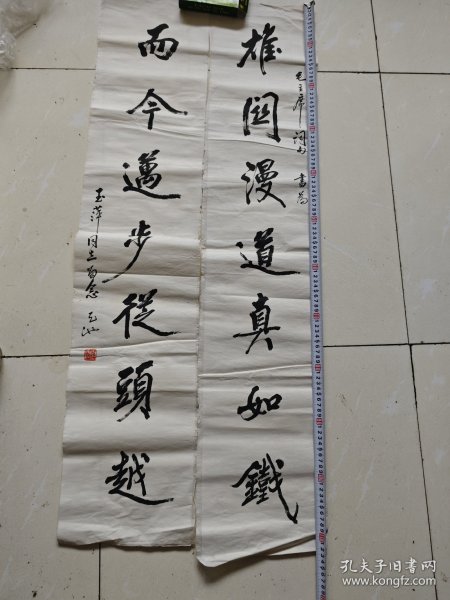 毛主席词句 书为
雄関漫道真如鐵
而今邁步從頭越
玉萍同志留念
孔夫子旧书网
www.kongfz.com